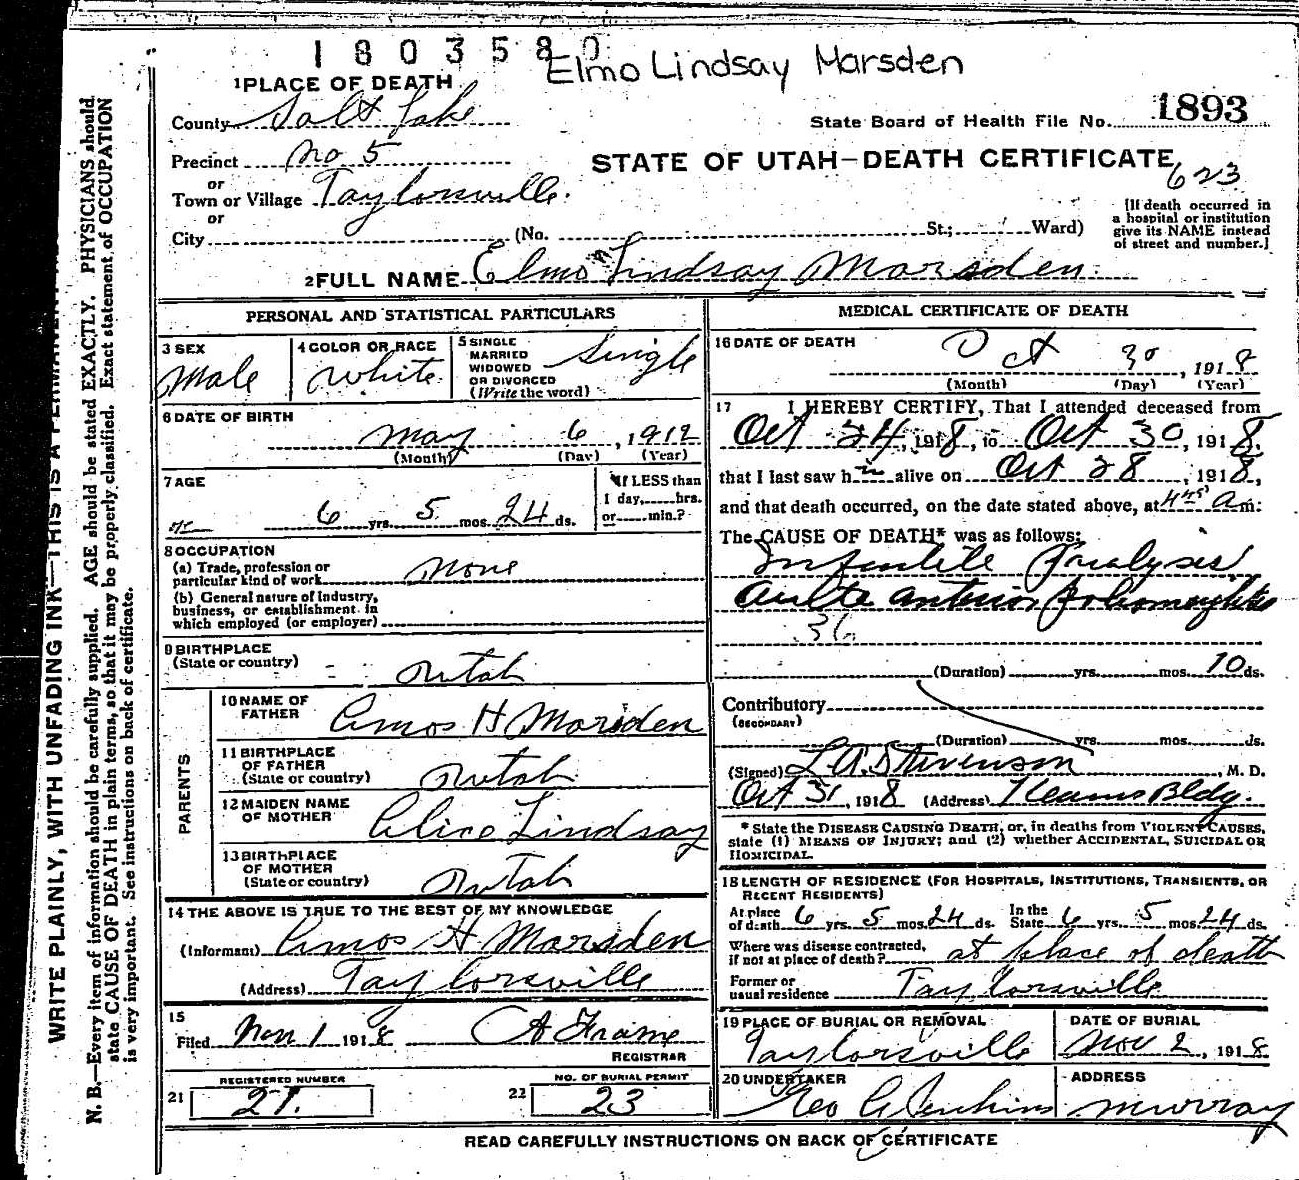 1803580
Elmo Lindsay Marsden
1 PLACE OF DEATH
County Salt Lake
State Board of Health File No. 1893
Precinct No 5
STATE OF UTAH—DEATH CERTIFICATE
623
or
Town or Village Taylorsville.
or
City (No. St.; Ward)
[If death occurred in
a hospital or institution
give its NAME instead
of street and number.]
2 FULL NAME Elmo Lindsay Marsden
PERSONAL AND STATISTICAL PARTICULARS
3 SEX
Male
4 COLOR OR RACE
White
5 SINGLE
MARRIED
WIDOWED
OR DIVORCED
(Write the word)
Single
6 DATE OF BIRTH
May 6, 1912
(Month) (Day) (Year)
7 AGE
6 yrs. 5 mos. 24 ds.
If LESS than
1 day, hrs.
or min.?
8 OCCUPATION
(a) Trade, profession or
particular kind of work none
(b) General nature of industry,
business, or establishment in
which employed (or employer)
9 BIRTHPLACE
(State or country) Utah
PARENTS
10 NAME OF
FATHER Amos H Marsden
11 BIRTHPLACE
OF FATHER
(State or country) Utah
12 MAIDEN NAME
OF MOTHER Alice Lindsay
13 BIRTHPLACE
OF MOTHER
(State or country) Utah
14 THE ABOVE IS TRUE TO THE BEST OF MY KNOWLEDGE
(Informant) Amos H Marsden
(Address) Taylorsville
15
Filed Nov 1 1918 A Frame
REGISTRAR
REGISTERED NUMBER
21 21.
NO. OF BURIAL PERMIT
22 23
MEDICAL CERTIFICATE OF DEATH
16 DATE OF DEATH
Oct 30, 1918
(Month) (Day) (Year)
17 I HEREBY CERTIFY, That I attended deceased from
Oct 24, 1918, to Oct 30, 1918,
that I last saw him alive on Oct 28, 1918,
and that death occurred, on the date stated above, at 4 45 a m.
The CAUSE OF DEATH* was as follows:
Infantile Paralysis
Acute anterior Poliomyelitis
36
(Duration) yrs. mos. 10 ds.
Contributory
(SECONDARY)
(Duration) yrs. mos. ds.
(Signed) L.A. Stevenson, M. D.
Oct 31, 1918 (Address) Kearns Bldg.
* State the DISEASE CAUSING DEATH, or, in deaths from VIOLENT CAUSES,
state (1) MEANS OF INJURY; and (2) whether ACCIDENTAL, SUICIDAL OR
HOMICIDAL.
18 LENGTH OF RESIDENCE (FOR HOSPITALS, INSTITUTIONS, TRANSIENTS, OR
RECENT RESIDENTS)
At place
of death 6 yrs. 5 mos. 24 ds. In the
State 6 yrs. 5 mos. 24 ds.
Where was disease contracted,
if not at place of death? at place of death
Former or
usual residence Taylorsville
19 PLACE OF BURIAL OR REMOVAL
Taylorsville
DATE OF BURIAL
Nov 2, 1918
20 UNDERTAKER
Geo A Jenkins
ADDRESS
Murray
READ CAREFULLY INSTRUCTIONS ON BACK OF CERTIFICATE
WRITE PLAINLY, WITH UNFADING INK—THIS IS A PERMANENT
N. B.—Every item of information should be carefully supplied. AGE should be stated EXACTLY. PHYSICIANS should
state CAUSE OF DEATH in plain terms, so that it may be properly classified. Exact statement of OCCUPATION
is very important. See instructions on back of certificate.